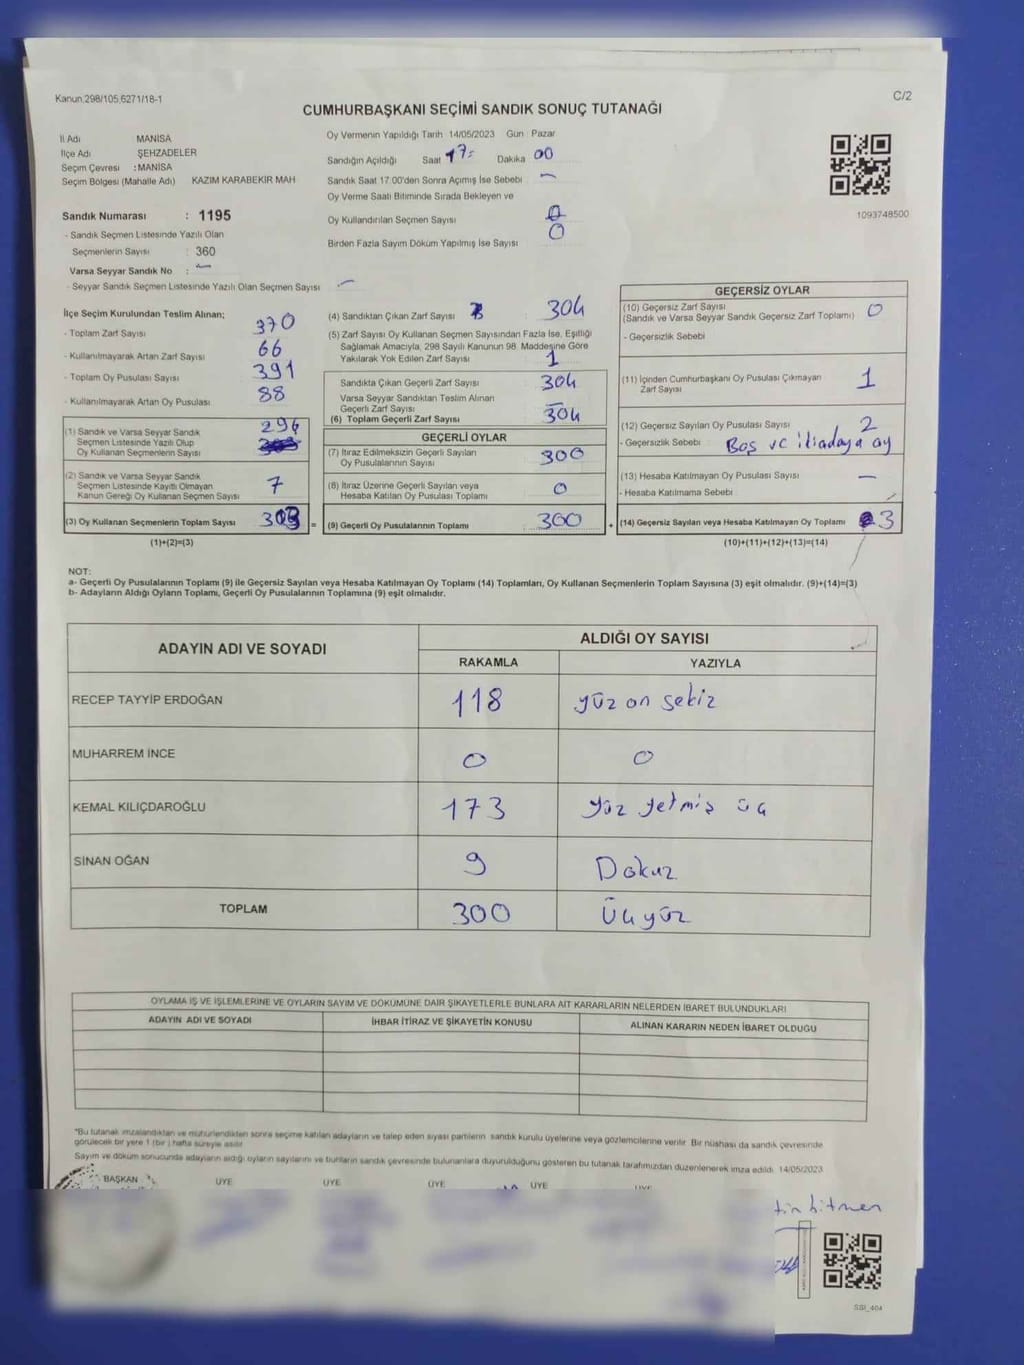 Kanun.298/105,6271/18-1
C/2
CUMHURBAŞKANI SEÇİMİ SANDIK SONUÇ TUTANAĞI
İl Adı MANİSA
İlçe Adı ŞEHZADELER
Seçim Çevresi : MANİSA
Seçim Bölgesi (Mahalle Adı) KAZIM KARABEKİR MAH
Sandık Numarası : 1195
- Sandık Seçmen Listesinde Yazılı Olan
Seçmenlerin Sayısı : 360
Varsa Seyyar Sandık No : —
- Seyyar Sandık Seçmen Listesinde Yazılı Olan Seçmen Sayısı —
Oy Vermenin Yapıldığı Tarih 14/05/2023 Gün : Pazar
Sandığın Açıldığı Saat 17: Dakika 00
Sandık Saat 17.00'den Sonra Açımış İse Sebebi —
Oy Verme Saati Bitiminde Sırada Bekleyen ve
Oy Kullandırılan Seçmen Sayısı 0
Birden Fazla Sayım Döküm Yapılmış İse Sayısı 0
1093748500
İlçe Seçim Kurulundan Teslim Alınan;
- Toplam Zarf Sayısı 370
- Kullanılmayarak Artan Zarf Sayısı 66
- Toplam Oy Pusulası Sayısı 391
- Kullanılmayarak Artan Oy Pusulası 88
(1) Sandık ve Varsa Seyyar Sandık
Seçmen Listesinde Yazılı Olup
Oy Kullanan Seçmenlerin Sayısı 296
(2) Sandık ve Varsa Seyyar Sandık
Seçmen Listesinde Kayıtlı Olmayan
Kanun Gereği Oy Kullanan Seçmen Sayısı 7
(3) Oy Kullanan Seçmenlerin Toplam Sayısı 303 =
(1)+(2)=(3)
(4) Sandıktan Çıkan Zarf Sayısı 304
(5) Zarf Sayısı Oy Kullanan Seçmen Sayısından Fazla İse, Eşitliği
Sağlamak Amacıyla, 298 Sayılı Kanunun 98. Maddesine Göre
Yakılarak Yok Edilen Zarf Sayısı 1
Sandıkta Çıkan Geçerli Zarf Sayısı 304
Varsa Seyyar Sandıktan Teslim Alınan
Geçerli Zarf Sayısı —
(6) Toplam Geçerli Zarf Sayısı 304
GEÇERLİ OYLAR
(7) İtiraz Edilmeksizin Geçerli Sayılan
Oy Pusulalarının Sayısı 300
(8) İtiraz Üzerine Geçerli Sayılan veya
Hesaba Katılan Oy Pusulası Toplamı 0
(9) Geçerli Oy Pusulalarının Toplamı 300 +
GEÇERSİZ OYLAR
(10) Geçersiz Zarf Sayısı 0
(Sandık ve Varsa Seyyar Sandık Geçersiz Zarf Toplamı)
- Geçersizlik Sebebi
(11) İçinden Cumhurbaşkanı Oy Pusulası Çıkmayan
Zarf Sayısı 1
(12) Geçersiz Sayılan Oy Pusulası Sayısı 2
- Geçersizlik Sebebi Boş ve iki adaya oy
(13) Hesaba Katılmayan Oy Pusulası Sayısı —
- Hesaba Katılmama Sebebi
(14) Geçersiz Sayılan veya Hesaba Katılmayan Oy Toplamı 3
(10)+(11)+(12)+(13)=(14)
NOT:
a- Geçerli Oy Pusulalarının Toplamı (9) ile Geçersiz Sayılan veya Hesaba Katılmayan Oy Toplamı (14) Toplamları, Oy Kullanan Seçmenlerin Toplam Sayısına (3) eşit olmalıdır. (9)+(14)=(3)
b- Adayların Aldığı Oyların Toplamı, Geçerli Oy Pusulalarının Toplamına (9) eşit olmalıdır.
ADAYIN ADI VE SOYADI
ALDIĞI OY SAYISI
RAKAMLA YAZIYLA
RECEP TAYYİP ERDOĞAN 118 yüz on sekiz
MUHARREM İNCE 0 0
KEMAL KILIÇDAROĞLU 173 yüz yetmiş üç
SİNAN OĞAN 9 Dokuz
TOPLAM 300 Üçyüz
OYLAMA İŞ VE İŞLEMLERİNE VE OYLARIN SAYIM VE DÖKÜMÜNE DAİR ŞİKAYETLERLE BUNLARA AİT KARARLARIN NELERDEN İBARET BULUNDUKLARI
ADAYIN ADI VE SOYADI İHBAR İTİRAZ VE ŞİKAYETİN KONUSU ALINAN KARARIN NEDEN İBARET OLDUĞU
*Bu tutanak imzalandıktan ve mühürlendikten sonra seçime katılan adayların ve talep eden siyasi partilerin sandık kurulu üyelerine veya gözlemcilerine verilir. Bir nüshası da sandık çevresinde
görülecek bir yere 1 (bir) hafta süreyle asılır.
Sayım ve döküm sonucunda adayların aldığı oyların sayılarını ve bunların sandık çevresinde bulunanlara duyurulduğunu gösteren bu tutanak tarafımızdan düzenlenerek imza edildi. 14/05/2023
BAŞKAN ÜYE ÜYE ÜYE ÜYE
SSI_404